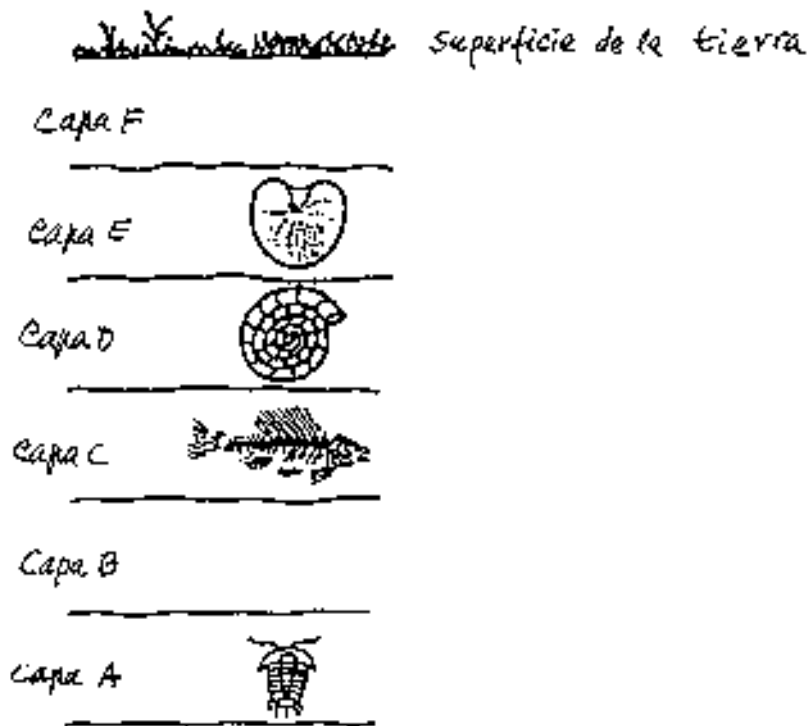 superficie de la tierra
Capa F
Capa E
Capa D
Capa C
Capa B
Capa A